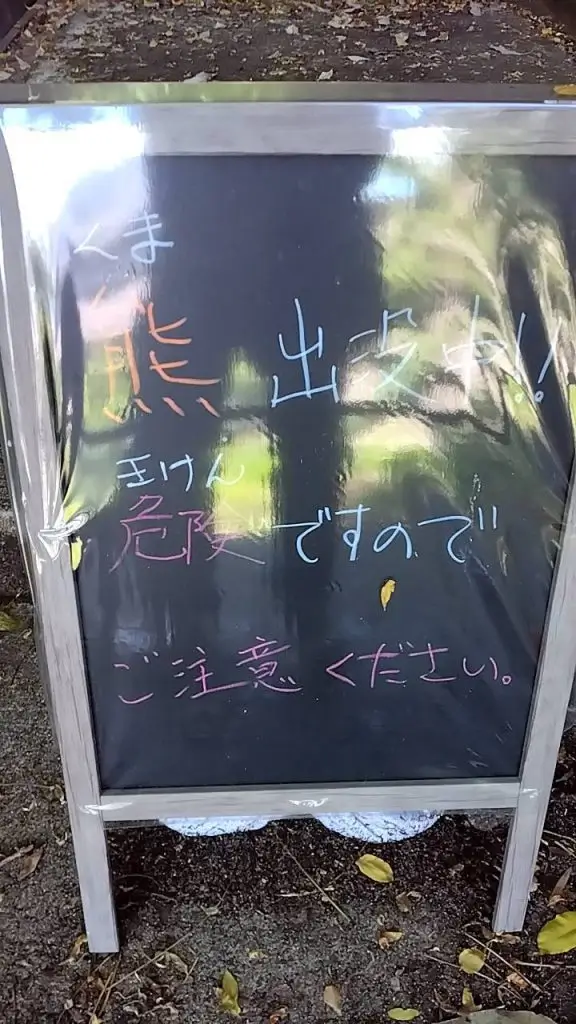 くま
熊 出没中!!
きけん
危険ですので
ご注意ください。